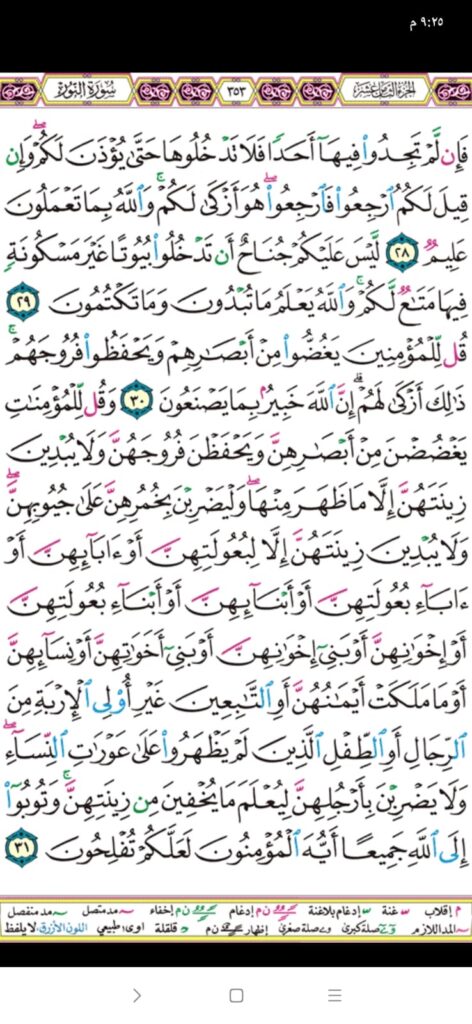 ٩:٢٥ م
الجزء الثامن عشر ٣٥٣ سورة النور
فَإِن لَّمْ تَجِدُوا۟ فِيهَآ أَحَدًا فَلَا تَدْخُلُوهَا حَتَّىٰ يُؤْذَنَ لَكُمْ ۖ وَإِن
قِيلَ لَكُمُ ٱرْجِعُوا۟ فَٱرْجِعُوا۟ ۖ هُوَ أَزْكَىٰ لَكُمْ ۚ وَٱللَّهُ بِمَا تَعْمَلُونَ
عَلِيمٌ ٢٨ لَّيْسَ عَلَيْكُمْ جُنَاحٌ أَن تَدْخُلُوا۟ بُيُوتًا غَيْرَ مَسْكُونَةٍ
فِيهَا مَتَـٰعٌ لَّكُمْ ۚ وَٱللَّهُ يَعْلَمُ مَا تُبْدُونَ وَمَا تَكْتُمُونَ ٢٩
قُل لِّلْمُؤْمِنِينَ يَغُضُّوا۟ مِنْ أَبْصَـٰرِهِمْ وَيَحْفَظُوا۟ فُرُوجَهُمْ ۚ
ذَٰلِكَ أَزْكَىٰ لَهُمْ ۗ إِنَّ ٱللَّهَ خَبِيرٌۢ بِمَا يَصْنَعُونَ ٣٠ وَقُل لِّلْمُؤْمِنَـٰتِ
يَغْضُضْنَ مِنْ أَبْصَـٰرِهِنَّ وَيَحْفَظْنَ فُرُوجَهُنَّ وَلَا يُبْدِينَ
زِينَتَهُنَّ إِلَّا مَا ظَهَرَ مِنْهَا ۖ وَلْيَضْرِبْنَ بِخُمُرِهِنَّ عَلَىٰ جُيُوبِهِنَّ ۖ
وَلَا يُبْدِينَ زِينَتَهُنَّ إِلَّا لِبُعُولَتِهِنَّ أَوْ ءَابَآئِهِنَّ أَوْ
ءَابَآءِ بُعُولَتِهِنَّ أَوْ أَبْنَآئِهِنَّ أَوْ أَبْنَآءِ بُعُولَتِهِنَّ
أَوْ إِخْوَٰنِهِنَّ أَوْ بَنِىٓ إِخْوَٰنِهِنَّ أَوْ بَنِىٓ أَخَوَٰتِهِنَّ أَوْ نِسَآئِهِنَّ
أَوْ مَا مَلَكَتْ أَيْمَـٰنُهُنَّ أَوِ ٱلتَّـٰبِعِينَ غَيْرِ أُو۟لِى ٱلْإِرْبَةِ مِنَ
ٱلرِّجَالِ أَوِ ٱلطِّفْلِ ٱلَّذِينَ لَمْ يَظْهَرُوا۟ عَلَىٰ عَوْرَٰتِ ٱلنِّسَآءِ ۖ
وَلَا يَضْرِبْنَ بِأَرْجُلِهِنَّ لِيُعْلَمَ مَا يُخْفِينَ مِن زِينَتِهِنَّ ۚ وَتُوبُوٓا۟
إِلَى ٱللَّهِ جَمِيعًا أَيُّهَ ٱلْمُؤْمِنُونَ لَعَلَّكُمْ تُفْلِحُونَ ٣١
م إقلاب غنة إدغام بلاغنة ن م إدغام ن م إخفاء مد متصل مد منفصل
المد اللازم صلة كبرى صلة صغرى إظهار ن م قلقلة اوى: طبيعي اللون الأزرق: لا يلفظ